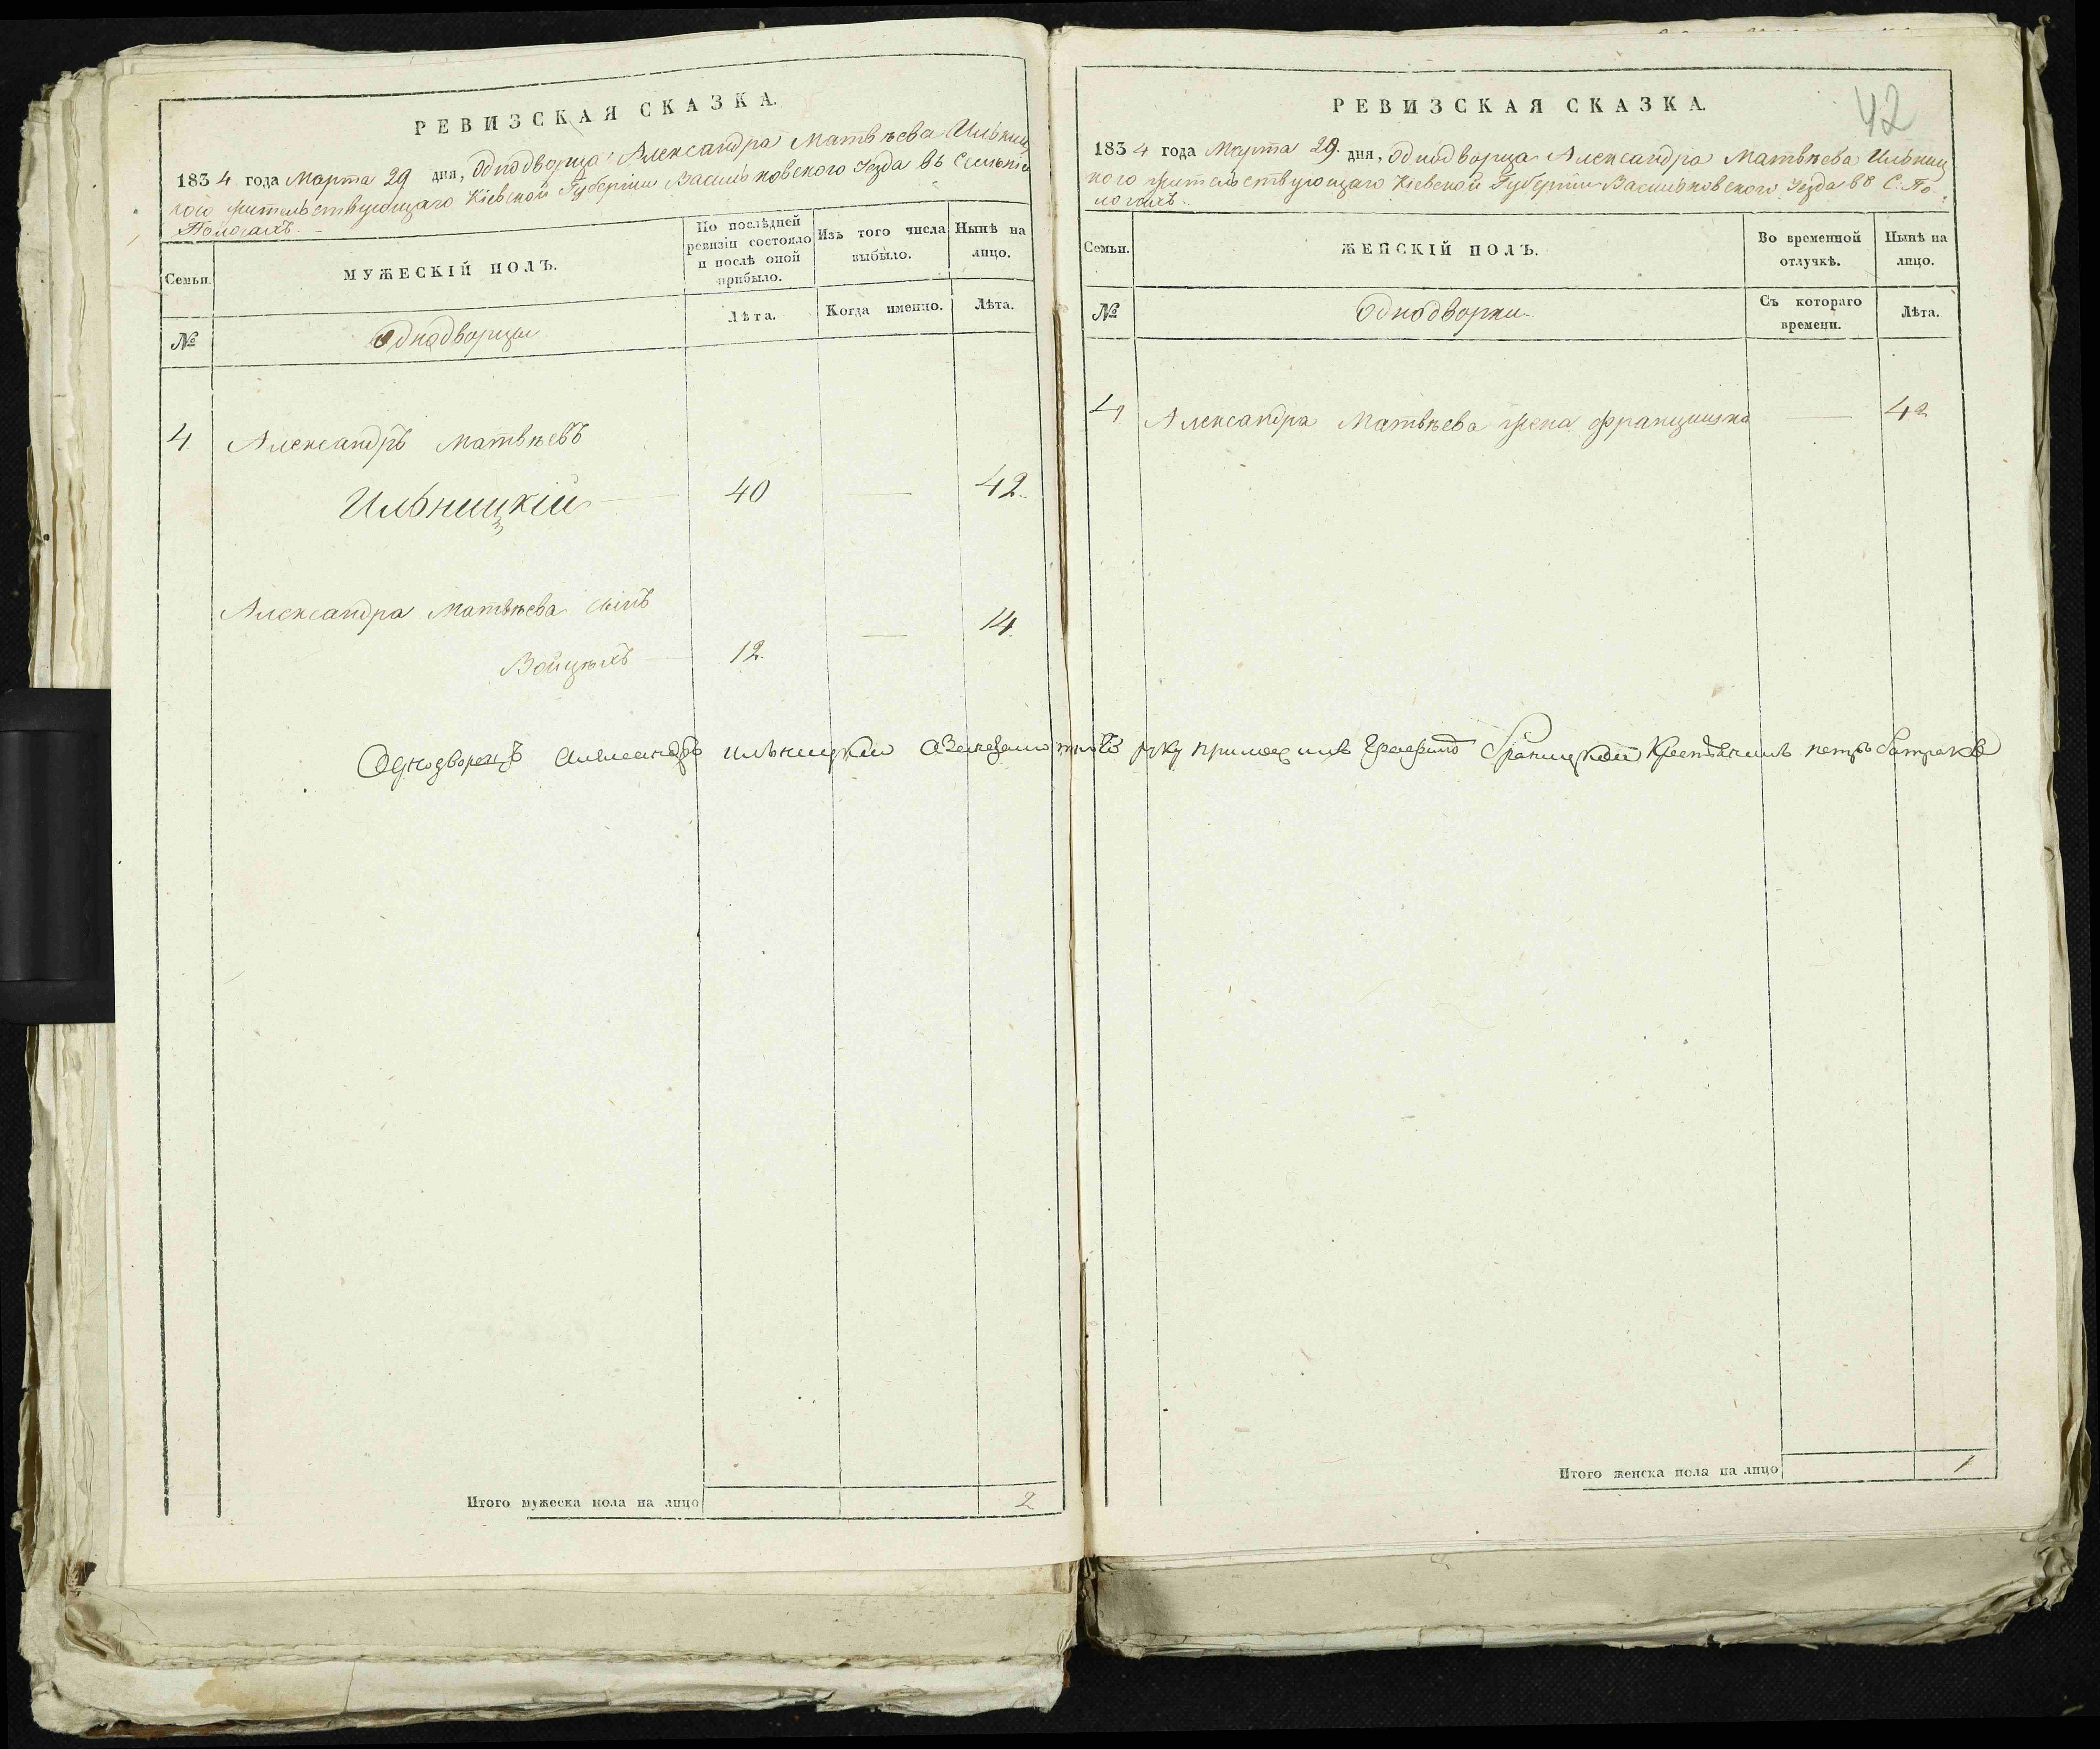 РЕВИЗСКАЯ СКАЗКА.
1834 года Марта 29 дня, Однодворца Александра Матвѣева Ильниц
кого жительствующаго Кіевской Губерніи Васильковского Уезда въ Селеніи
Пологахъ.
Семьи.
МУЖЕСКІЙ ПОЛЪ.
По послѣдней ревизіи состояло и послѣ оной прибыло.
Изъ того числа выбыло.
Нынѣ на лицо.
№
Однодворцы
Лѣта.
Когда именно.
Лѣта.
4 Александръ Матвѣевъ
Ильницкій — 40 — 42
Александра Матвѣева сынъ
Войцѣхъ — 12. — 14.
Итого мужеска пола на лицо 2
РЕВИЗСКАЯ СКАЗКА.
42
1834 года Марта 29 дня, Однодворца Александра Матвѣева Ильниц
кого жительствующаго Кіевской Губерніи Васильковского Уезда въ С. По
логахъ.
Семьи.
ЖЕНСКІЙ ПОЛЪ.
Во временной отлучкѣ.
Нынѣ на лицо.
№
Однодворки
Съ котораго времени.
Лѣта.
4 Александра Матвѣева жена Францишка — 42
Однодворецъ Александръ Ильницкий руку приложилъ Браницкой Крестьянинъ петръ
Итого женска пола на лицо 1